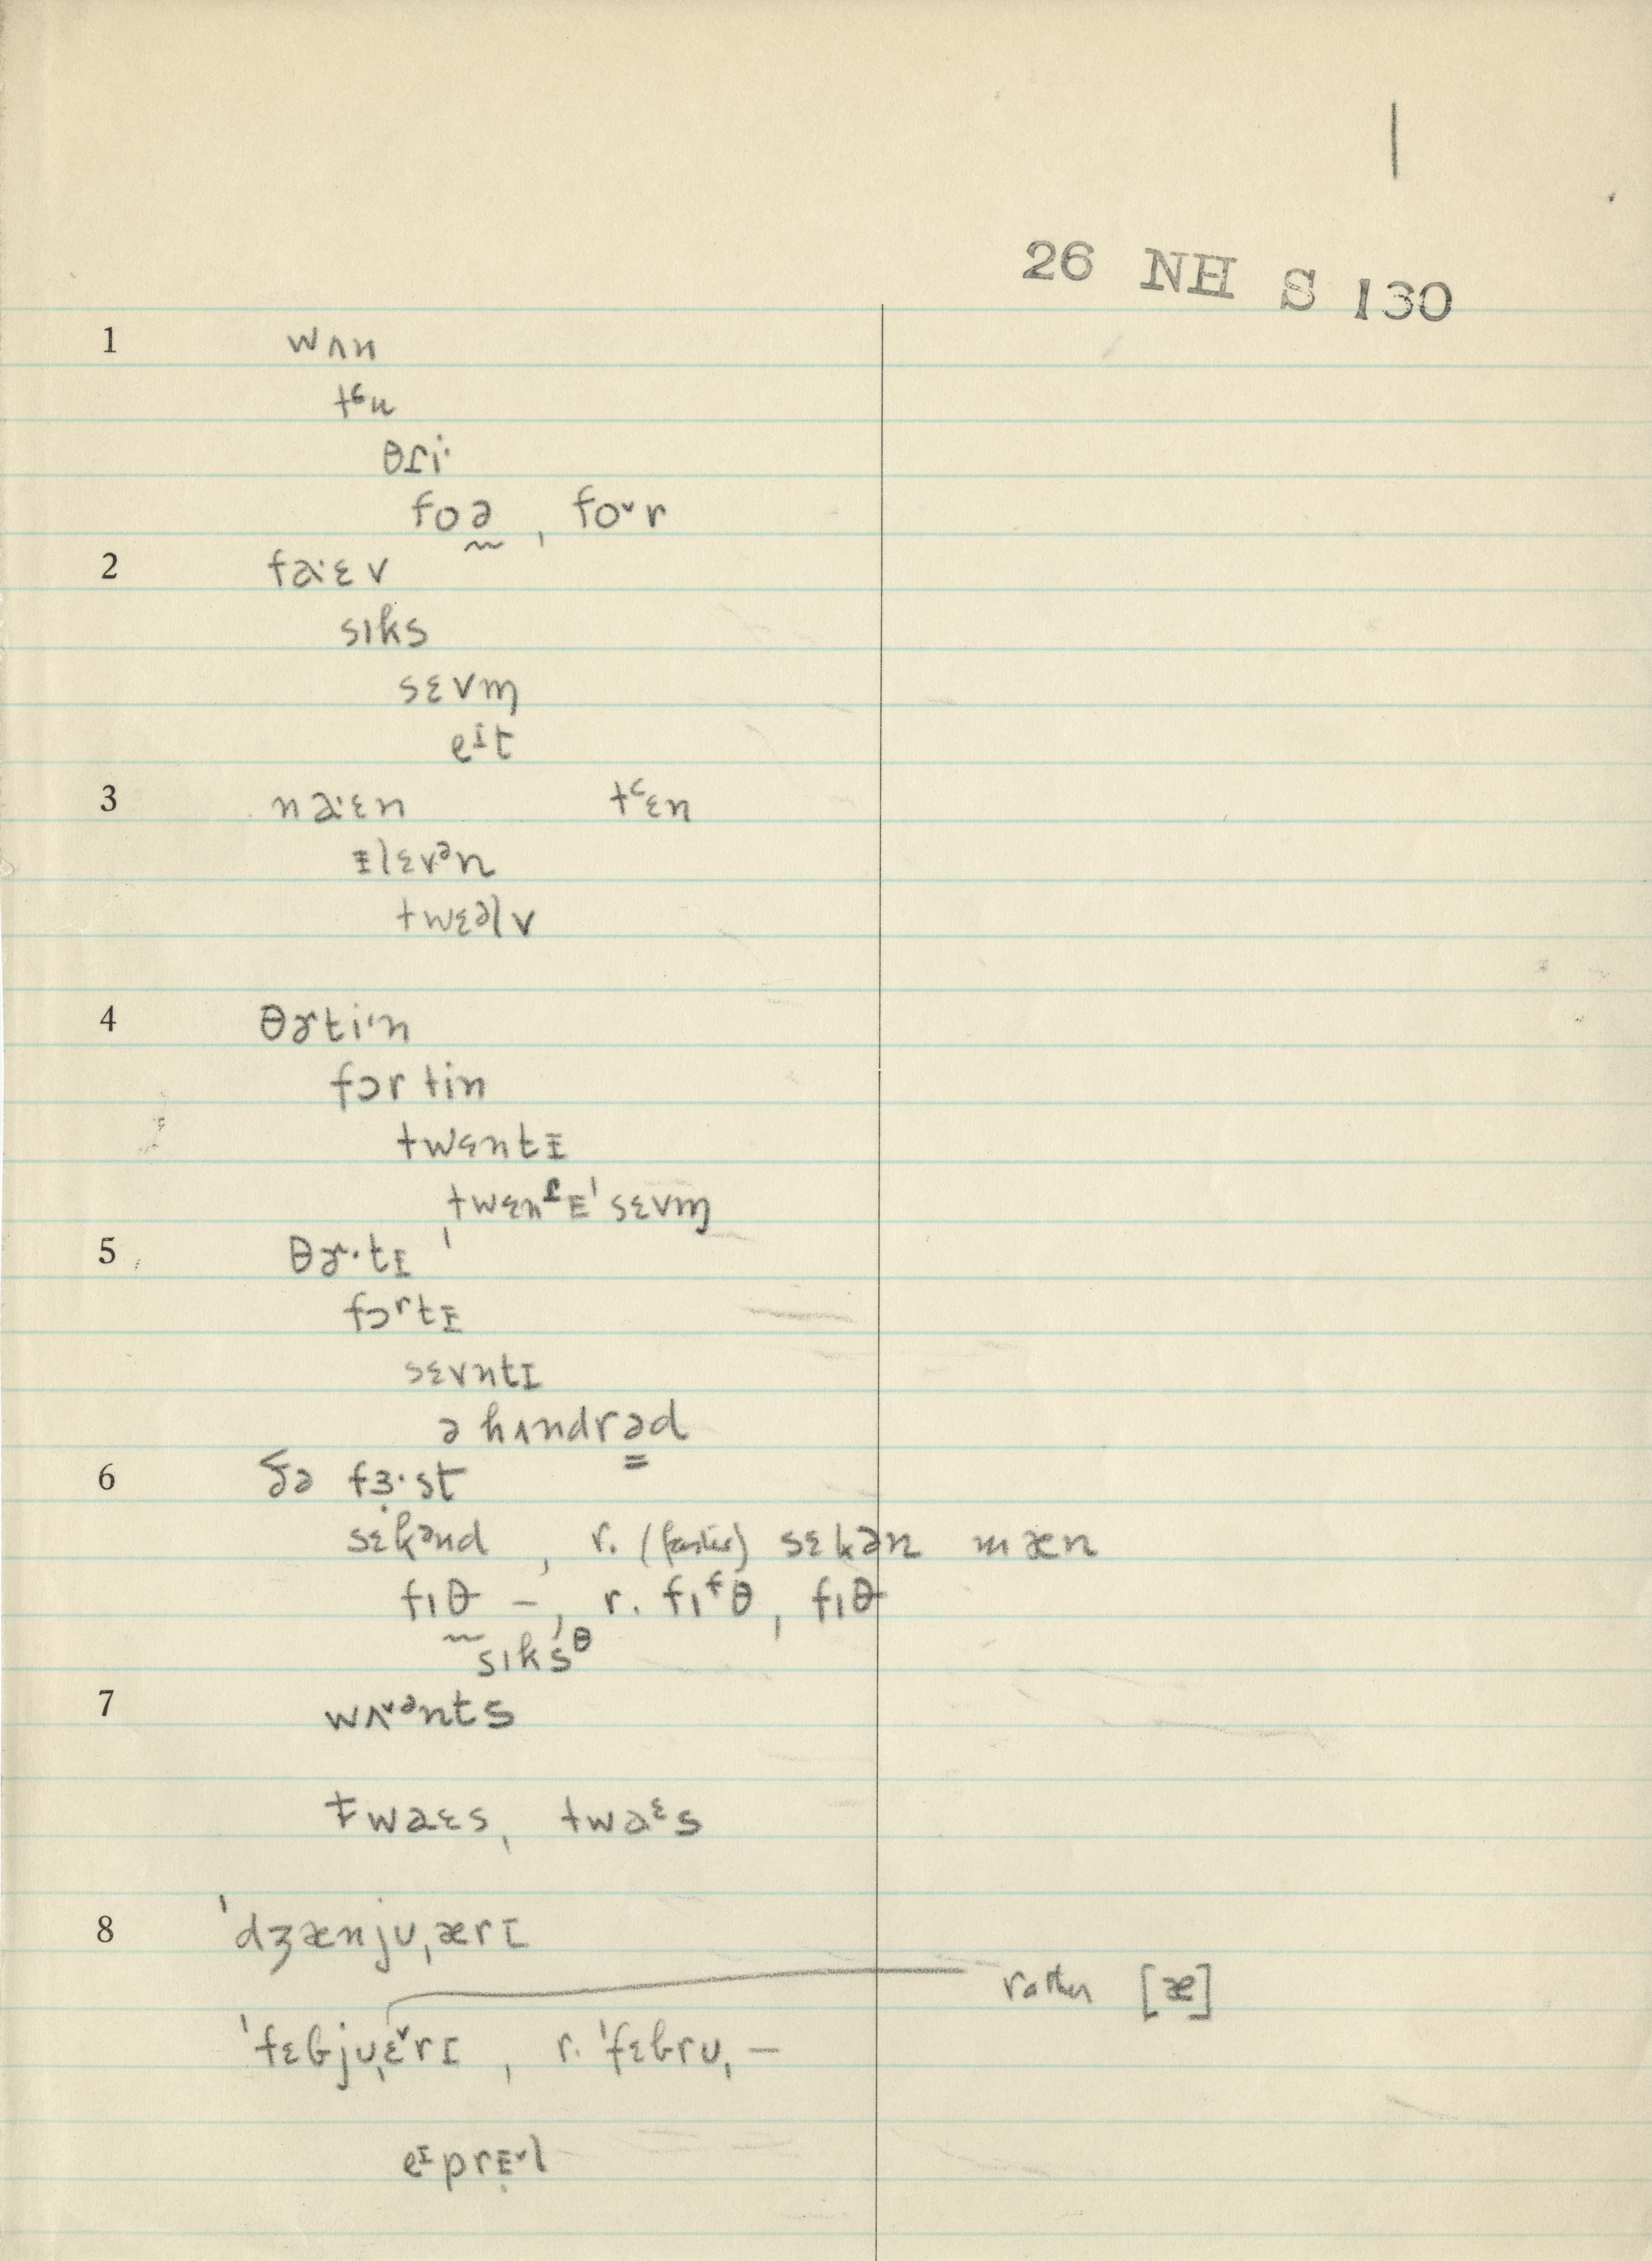 |
26 NH S 130
1 wʌn
tᶜu
θɾi·
foə̰ , foᵛr
2 fa·ɛv
sɪks
sɛvm̩
eᴵt
3 na·ɛn tᶜɛn
ᵻlɛvᵊn
twɛəlv
4 θɚti·n
fɔrtin
twɛntᵻ
ˌtwɛnᶴᵻˈsɛvm̩
5 θɚ·tɪ
fɔʳtᵻ
sɛvntɪ
ə hʌndrəd
6 ðə fɜ·st
sɛkᵊnd , r. (faster) sɛkən mæn
fɪθ –, r. fɪᶠθ, fɪθ
sɪksᶿ
7 wʌᵛᵊnts
twaɛs, twaᵋs
8 ˈdʒænjʊˌærɪ
rather [æ]
ˈfɛbjʊˌɛᵛrɪ , r. ˈfɛbrʊˌ—
eᴵprᵻᵛl